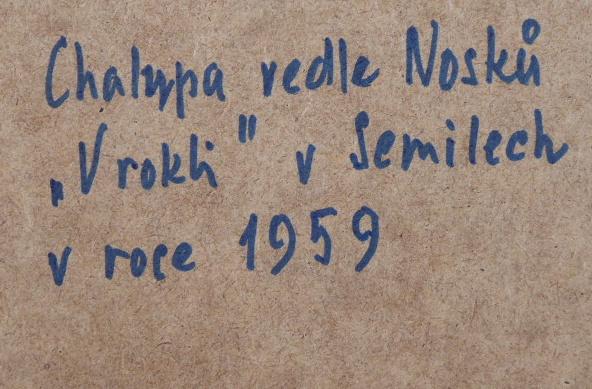 Chalupa vedle Nosků
„V rokli" v Semilech
v roce 1959